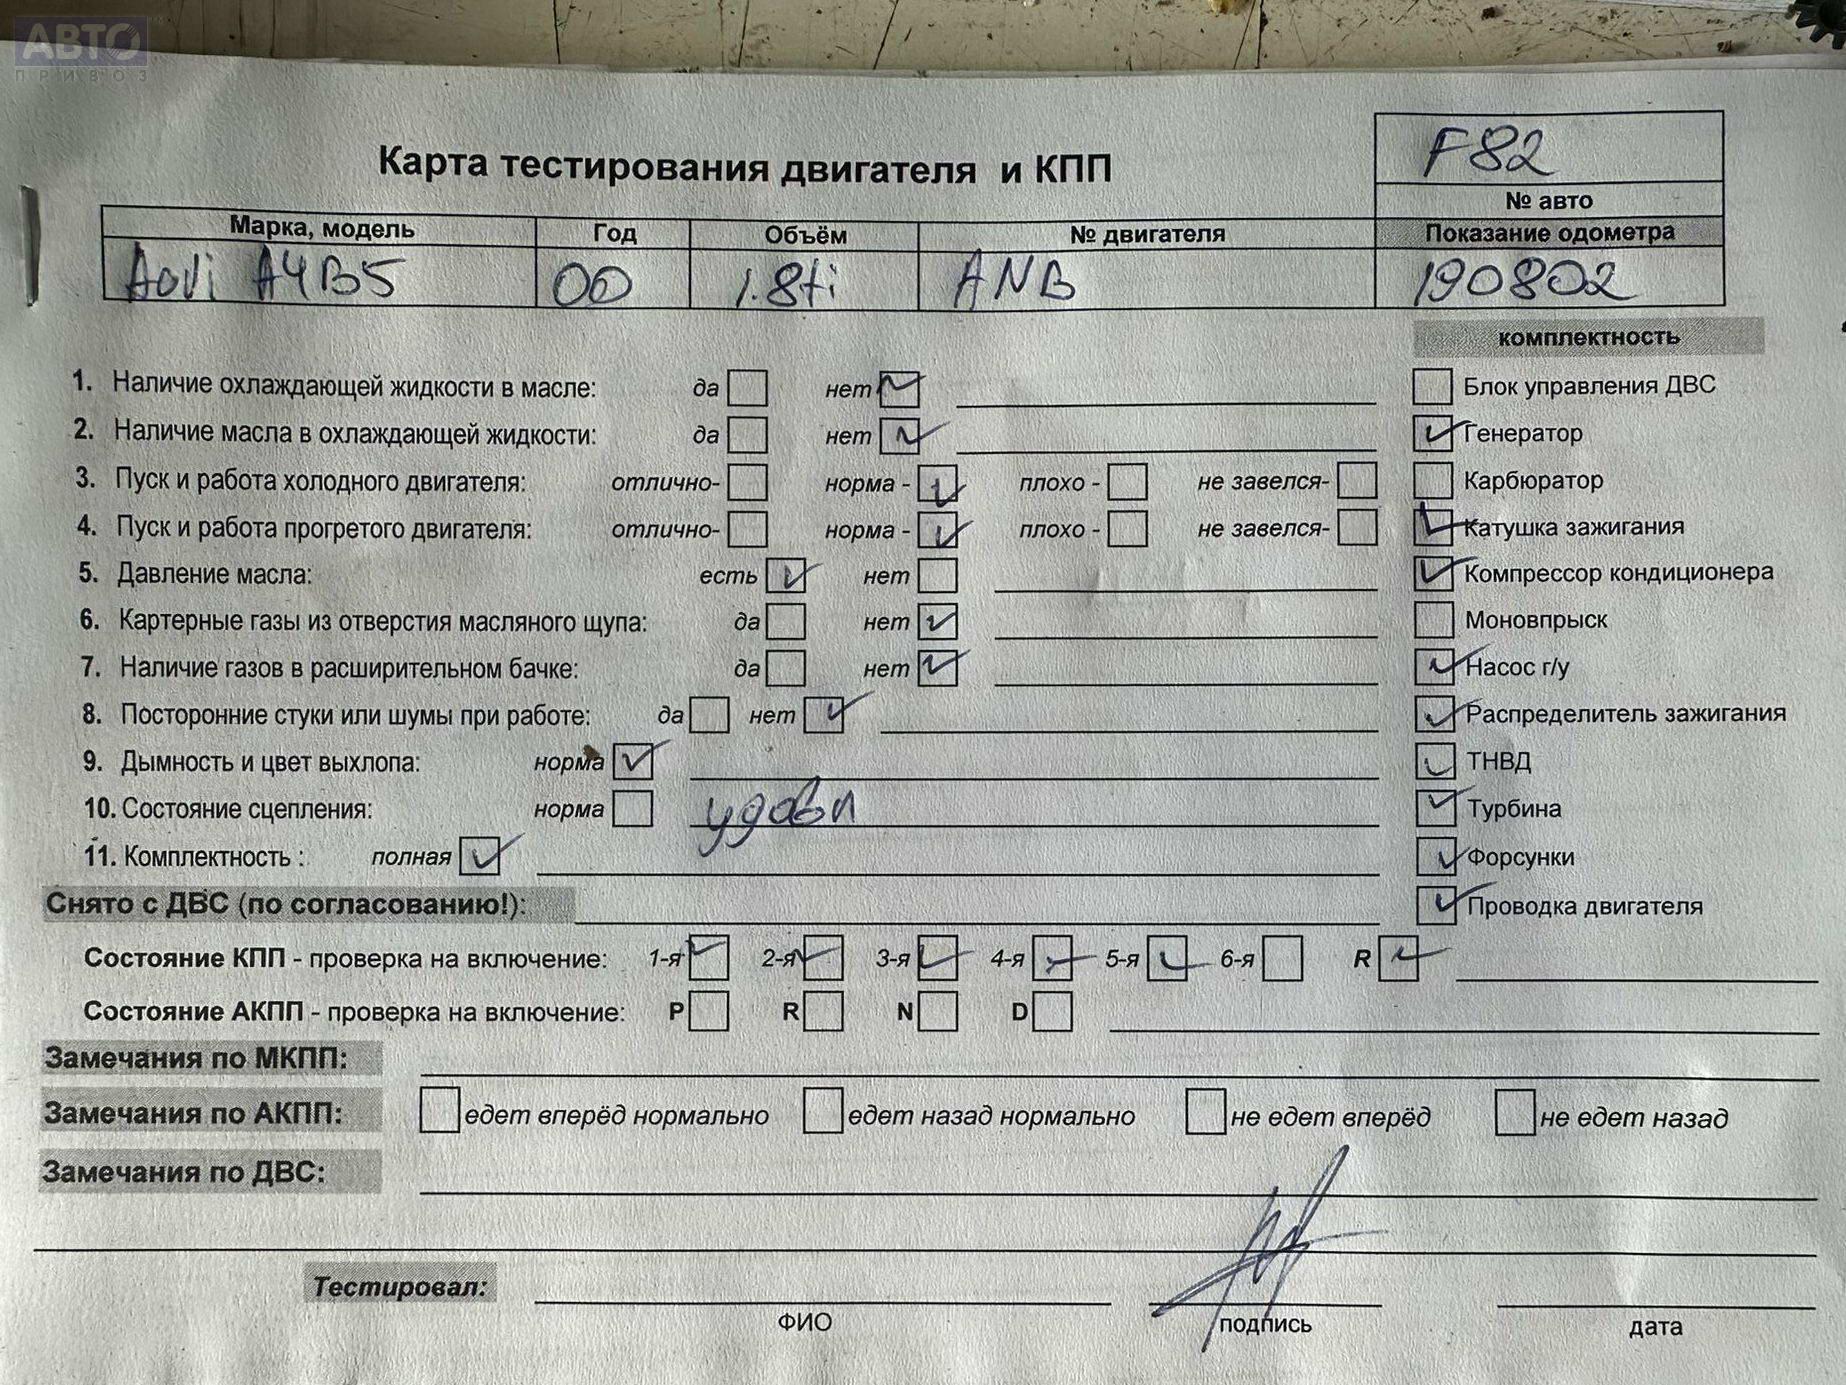 АВТО
ПРИВОЗ
F82
Карта тестирования двигателя и КПП
№ авто
Марка, модель Год Объём № двигателя Показание одометра
Aodi A4B5 00 1.8ti ANB 190802
комплектность
1. Наличие охлаждающей жидкости в масле: да нет Блок управления ДВС
2. Наличие масла в охлаждающей жидкости: да нет Генератор
3. Пуск и работа холодного двигателя: отлично- норма - плохо - не завелся- Карбюратор
4. Пуск и работа прогретого двигателя: отлично- норма - плохо - не завелся- Катушка зажигания
5. Давление масла: есть нет Компрессор кондиционера
6. Картерные газы из отверстия масляного щупа: да нет Моновпрыск
7. Наличие газов в расширительном бачке: да нет Насос г/у
8. Посторонние стуки или шумы при работе: да нет Распределитель зажигания
9. Дымность и цвет выхлопа: норма ТНВД
10. Состояние сцепления: норма удовл Турбина
11. Комплектность : полная Форсунки
Снято с ДВС (по согласованию!): Проводка двигателя
Состояние КПП - проверка на включение: 1-я 2-я 3-я 4-я 5-я 6-я R
Состояние АКПП - проверка на включение: P R N D
Замечания по МКПП:
Замечания по АКПП: едет вперёд нормально едет назад нормально не едет вперёд не едет назад
Замечания по ДВС:
Тестировал:
ФИО подпись дата